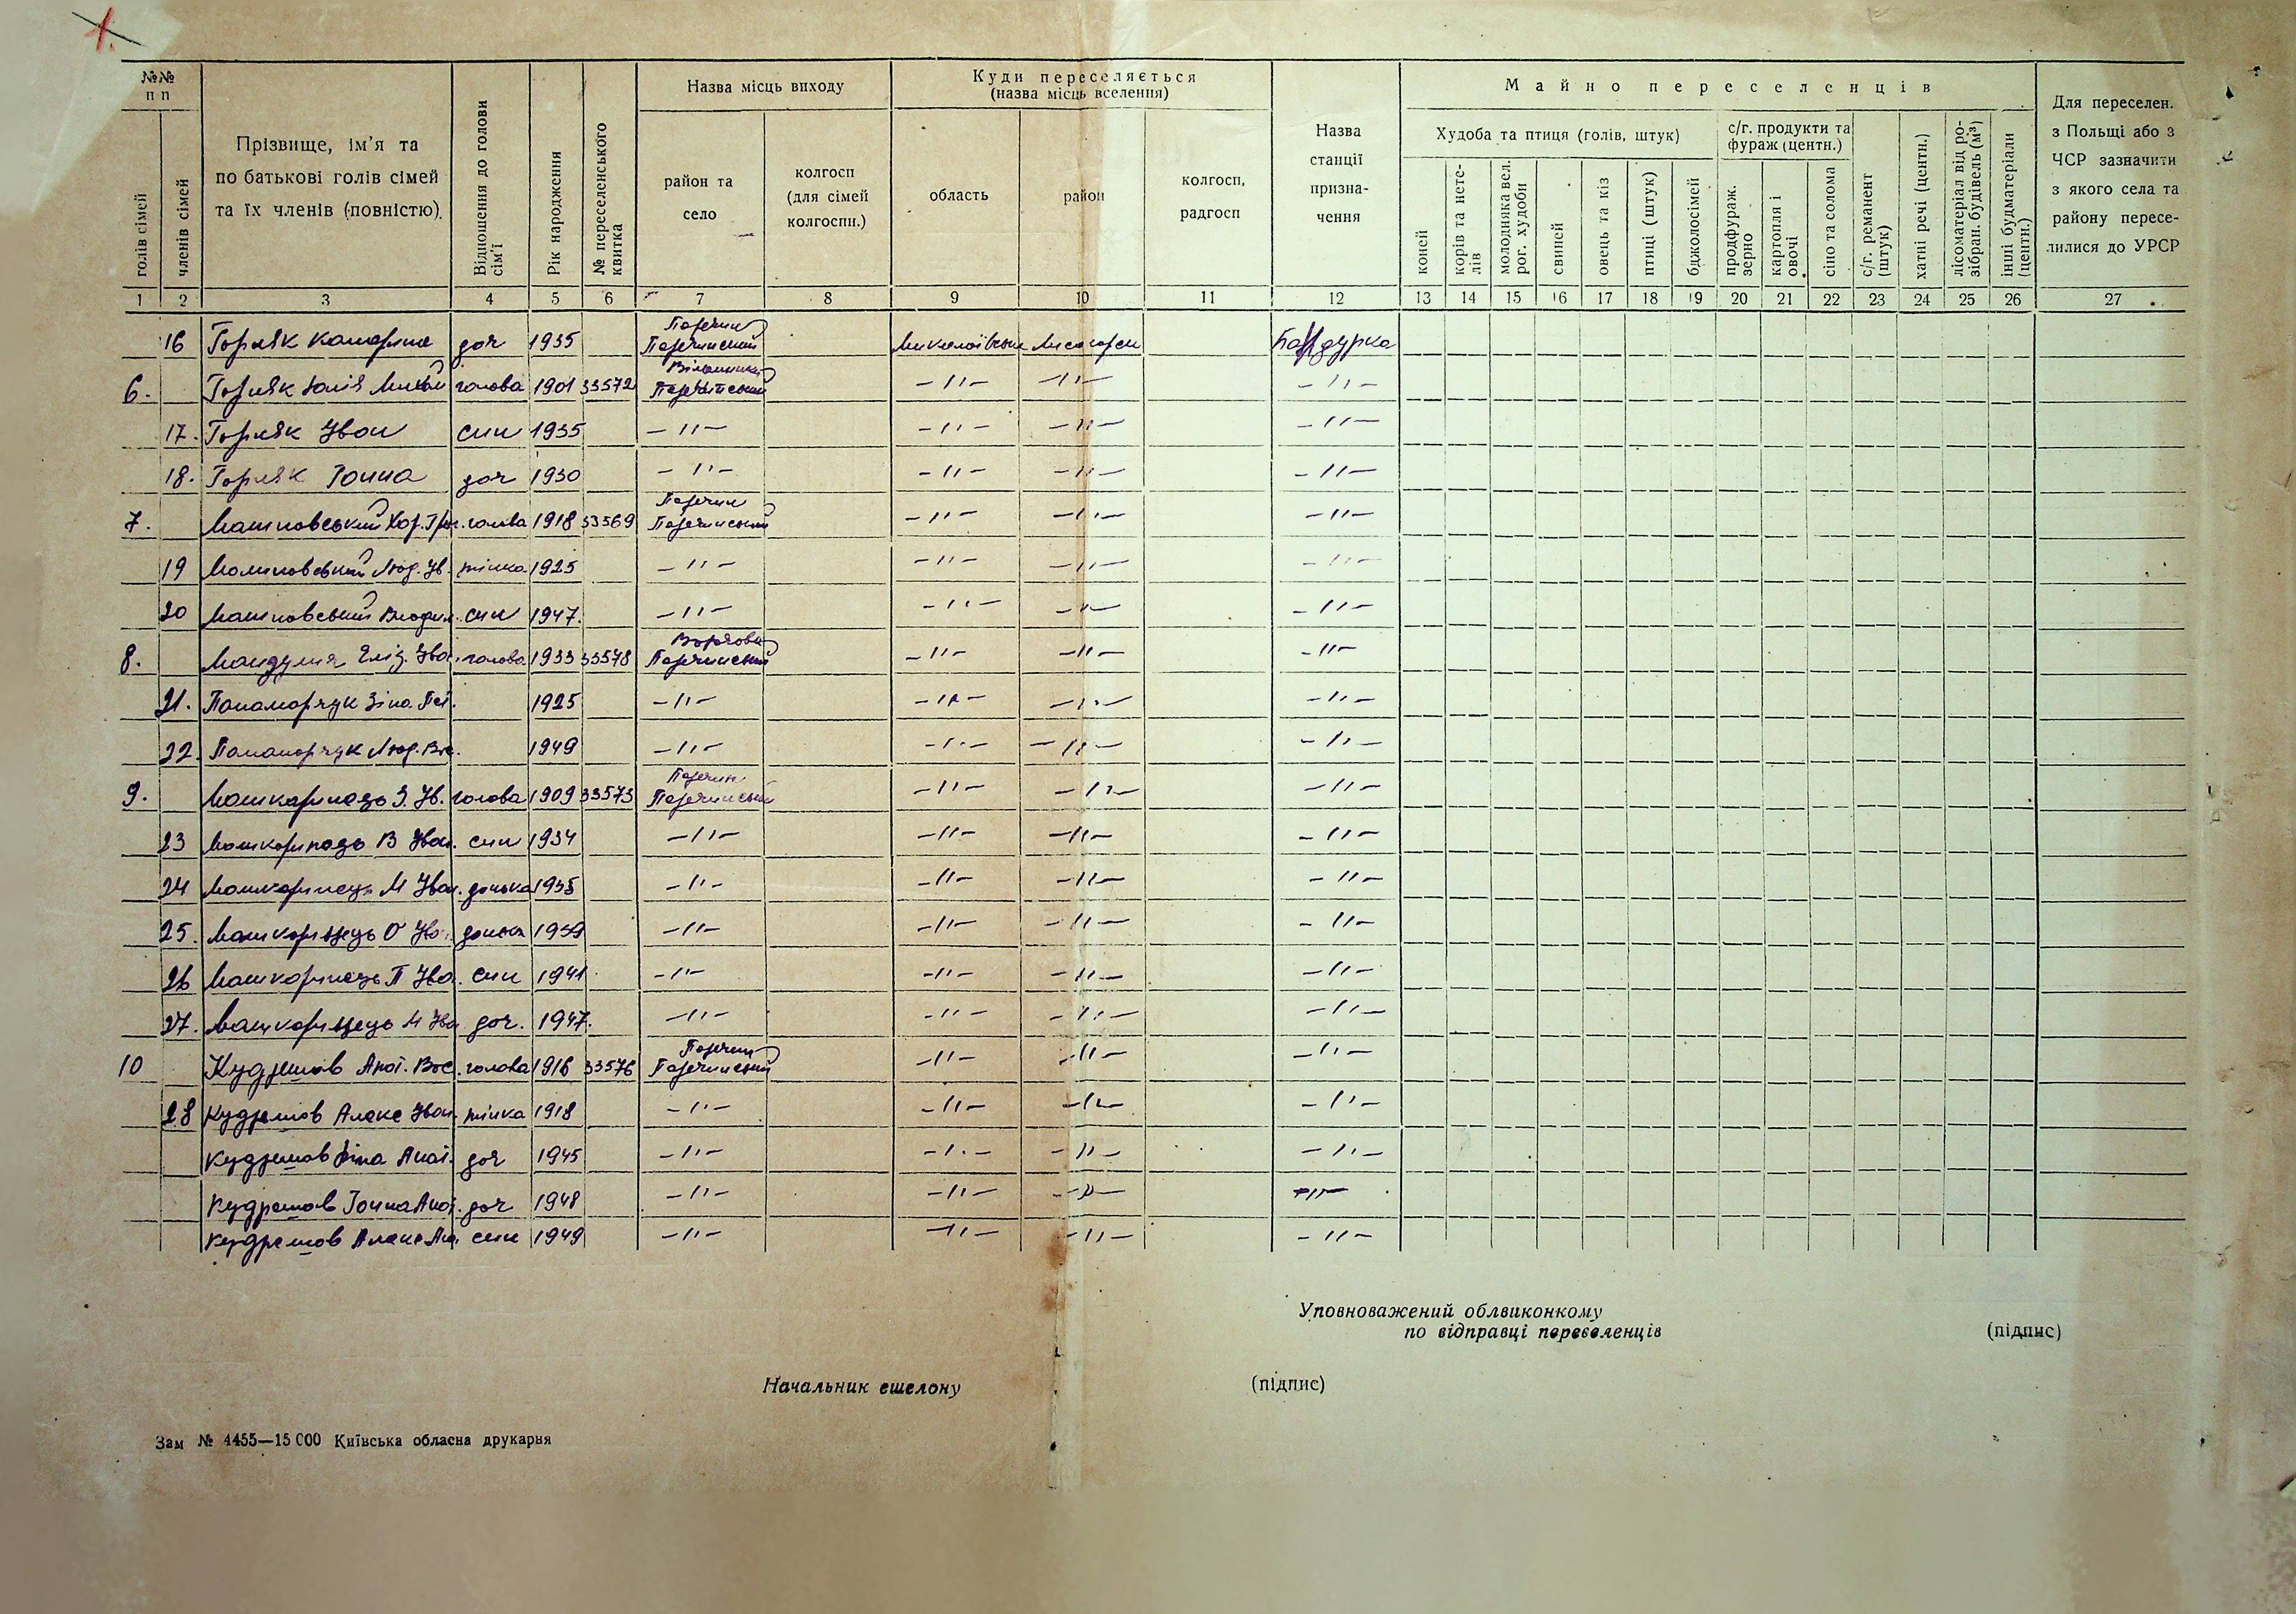 №№ п п
Назва місць виходу
Куди переселяється
(назва місць вселення)
Майно переселенців
голів сімей
членів сімей
Прізвище, ім'я та
по батькові голів сімей
та їх членів (повністю).
Відношення до голови сім'ї
Рік народження
№ переселенського квитка
район та
село
колгосп
(для сімей
колгоспн.)
область
район
колгосп,
радгосп
Назва
станції
призна-
чення
Худоба та птиця (голів, штук)
с/г. продукти та
фураж (центн.)
коней
корів та нете-
лів
молодняка вел.
рог. худоби
свиней
овець та кіз
птиці (штук)
бджолосімей
продфураж.
зерно
картопля і
овочі
сіно та солома
с/г. реманент
(штук)
хатні речі (центн.)
лісоматеріал від ро-
зібран. будівель (м³)
інші будматеріали
(центн.)
Для переселен.
з Польщі або з
ЧСР зазначити
з якого села та
району пересе-
лилися до УРСР
1 2 3 4 5 6 7 8 9 10 11 12 13 14 15 16 17 18 19 20 21 22 23 24 25 26 27
16 Горляк доч 1935 Перечин Перечинський Бандурка
6. Горляк Юлія голова 1901 33572 Перечинський -"- -"- -"-
17. Горляк Іван син 1935 -"- -"- -"- -"-
18. Горляк Ганна доч 1930 -"- -"- -"- -"-
7. голова 1918 33569 Перечин Перечинський -"- -"- -"-
19 Люд. Ів. жінка 1925 -"- -"- -"- -"-
20 син 1947. -"- -"- -"- -"-
8. Єліз. Іван. голова 1933 33578 Перечинський -"- -"- -"-
21. Зіна. 1925 -"- -"- -"- -"-
22. Люд. Вас. 1949 -"- -"- -"- -"-
9. Машкаринець З. Ів. голова 1909 33573 Перечин Перечинський -"- -"- -"-
23 Машкаринець В Іван. син 1934 -"- -"- -"- -"-
24 Машкаринець М Іван. донька 1935 -"- -"- -"- -"-
25. Машкаринець О Іва. донька 1939 -"- -"- -"- -"-
26 Машкаринець П Іва. син 1941 -"- -"- -"- -"-
27. Машкаринець М Іва доч. 1947. -"- -"- -"- -"-
10 Кудряшов Анат. Вас. голова 1916 33576 Перечин Перечинський -"- -"- -"-
28 Кудряшов Алекс Іван. жінка 1918 -"- -"- -"- -"-
Кудряшов Анат. доч 1945 -"- -"- -"- -"-
Кудряшов Ганна Анат. доч 1948 -"- -"- -"- -"-
Кудряшов Алекс Ана син 1949 -"- -"- -"- -"-
Уповноважений облвиконкому
по відправці переселенців (підпис)
Начальник ешелону (підпис)
Зам № 4455—15 000 Київська обласна друкарня